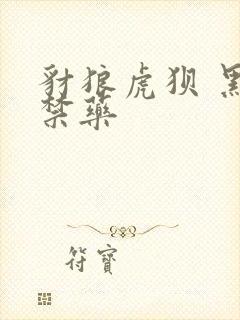 豺狼虎狈 黑
禁药
符寶